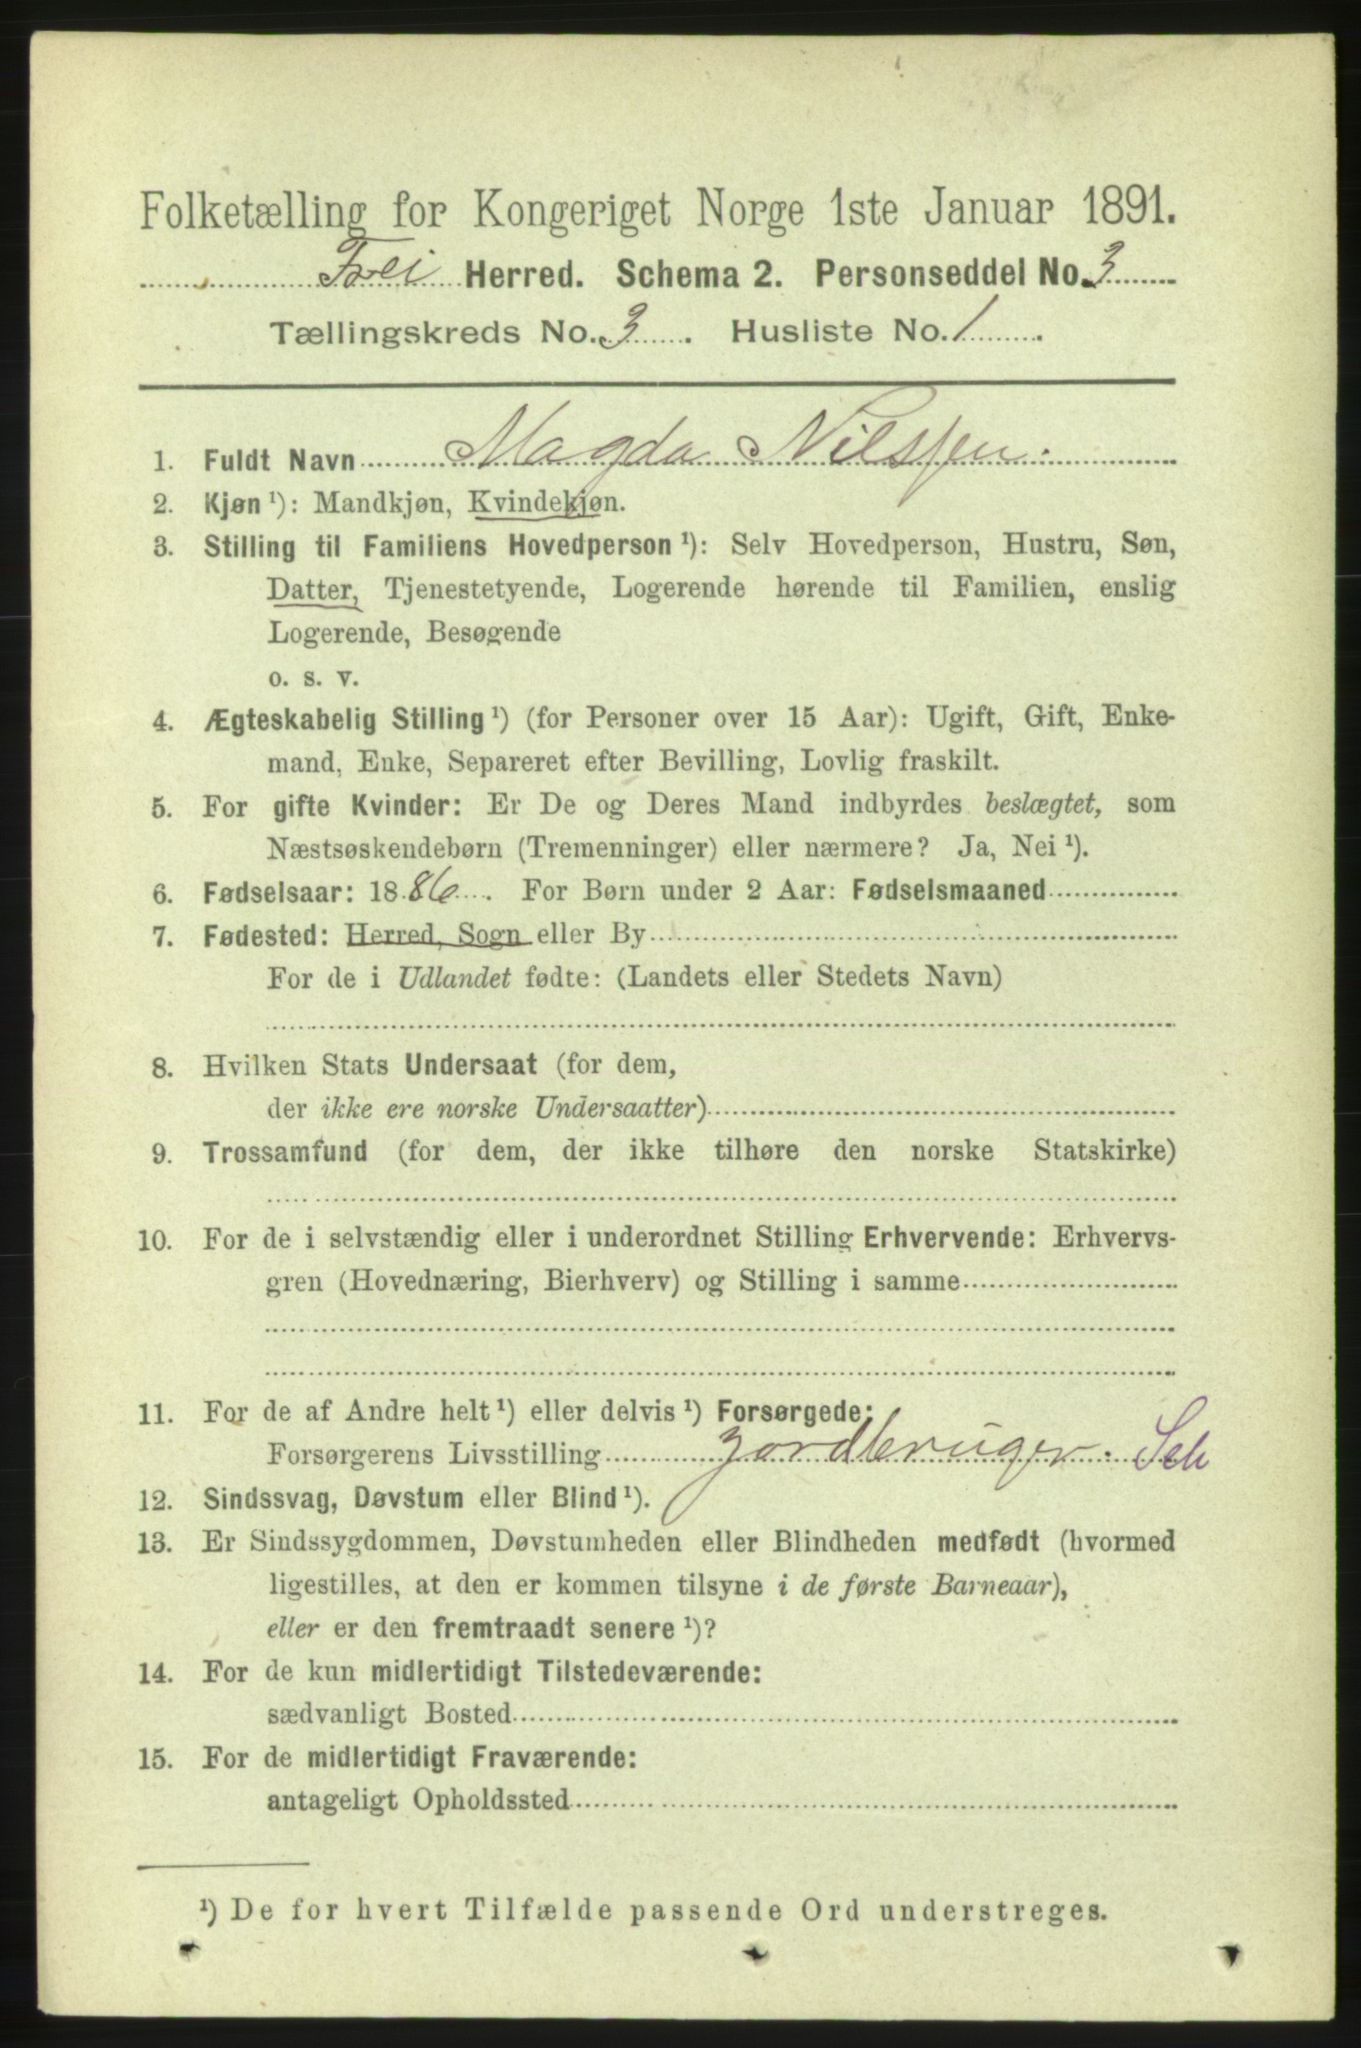 Folketælling for Kongeriget Norge 1ste Januar 1891.
Frei Herred. Schema 2. Personseddel No. 3
Tællingskreds No. 3. Husliste No. 1.
1. Fuldt Navn Magda Nilssen.
2. Kjøn ¹): Mandkjøn, Kvindekjøn.
3. Stilling til Familiens Hovedperson ¹): Selv Hovedperson, Hustru, Søn,
Datter, Tjenestetyende, Logerende hørende til Familien, enslig
Logerende, Besøgende
o. s. v.
4. Ægteskabelig Stilling ¹) (for Personer over 15 Aar): Ugift, Gift, Enke-
mand, Enke, Separeret efter Bevilling, Lovlig fraskilt.
5. For gifte Kvinder: Er De og Deres Mand indbyrdes beslægtet, som
Næstsøskendebørn (Tremenninger) eller nærmere? Ja, Nei ¹).
6. Fødselsaar: 1886. For Børn under 2 Aar: Fødselsmaaned
7. Fødested: Herred, Sogn eller By
For de i Udlandet fødte: (Landets eller Stedets Navn)
8. Hvilken Stats Undersaat (for dem,
der ikke ere norske Undersaatter)
9. Trossamfund (for dem, der ikke tilhøre den norske Statskirke)
10. For de i selvstændig eller i underordnet Stilling Erhvervende: Erhvervs-
gren (Hovednæring, Bierhverv) og Stilling i samme
11. For de af Andre helt ¹) eller delvis ¹) Forsørgede:
Forsørgerens Livsstilling Jordbruger. Sel
12. Sindssvag, Døvstum eller Blind ¹).
13. Er Sindssygdommen, Døvstumheden eller Blindheden medfødt (hvormed
ligestilles, at den er kommen tilsyne i de første Barneaar),
eller er den fremtraadt senere ¹)?
14. For de kun midlertidigt Tilstedeværende:
sædvanligt Bosted
15. For de midlertidigt Fraværende:
antageligt Opholdssted
¹) De for hvert Tilfælde passende Ord understreges.